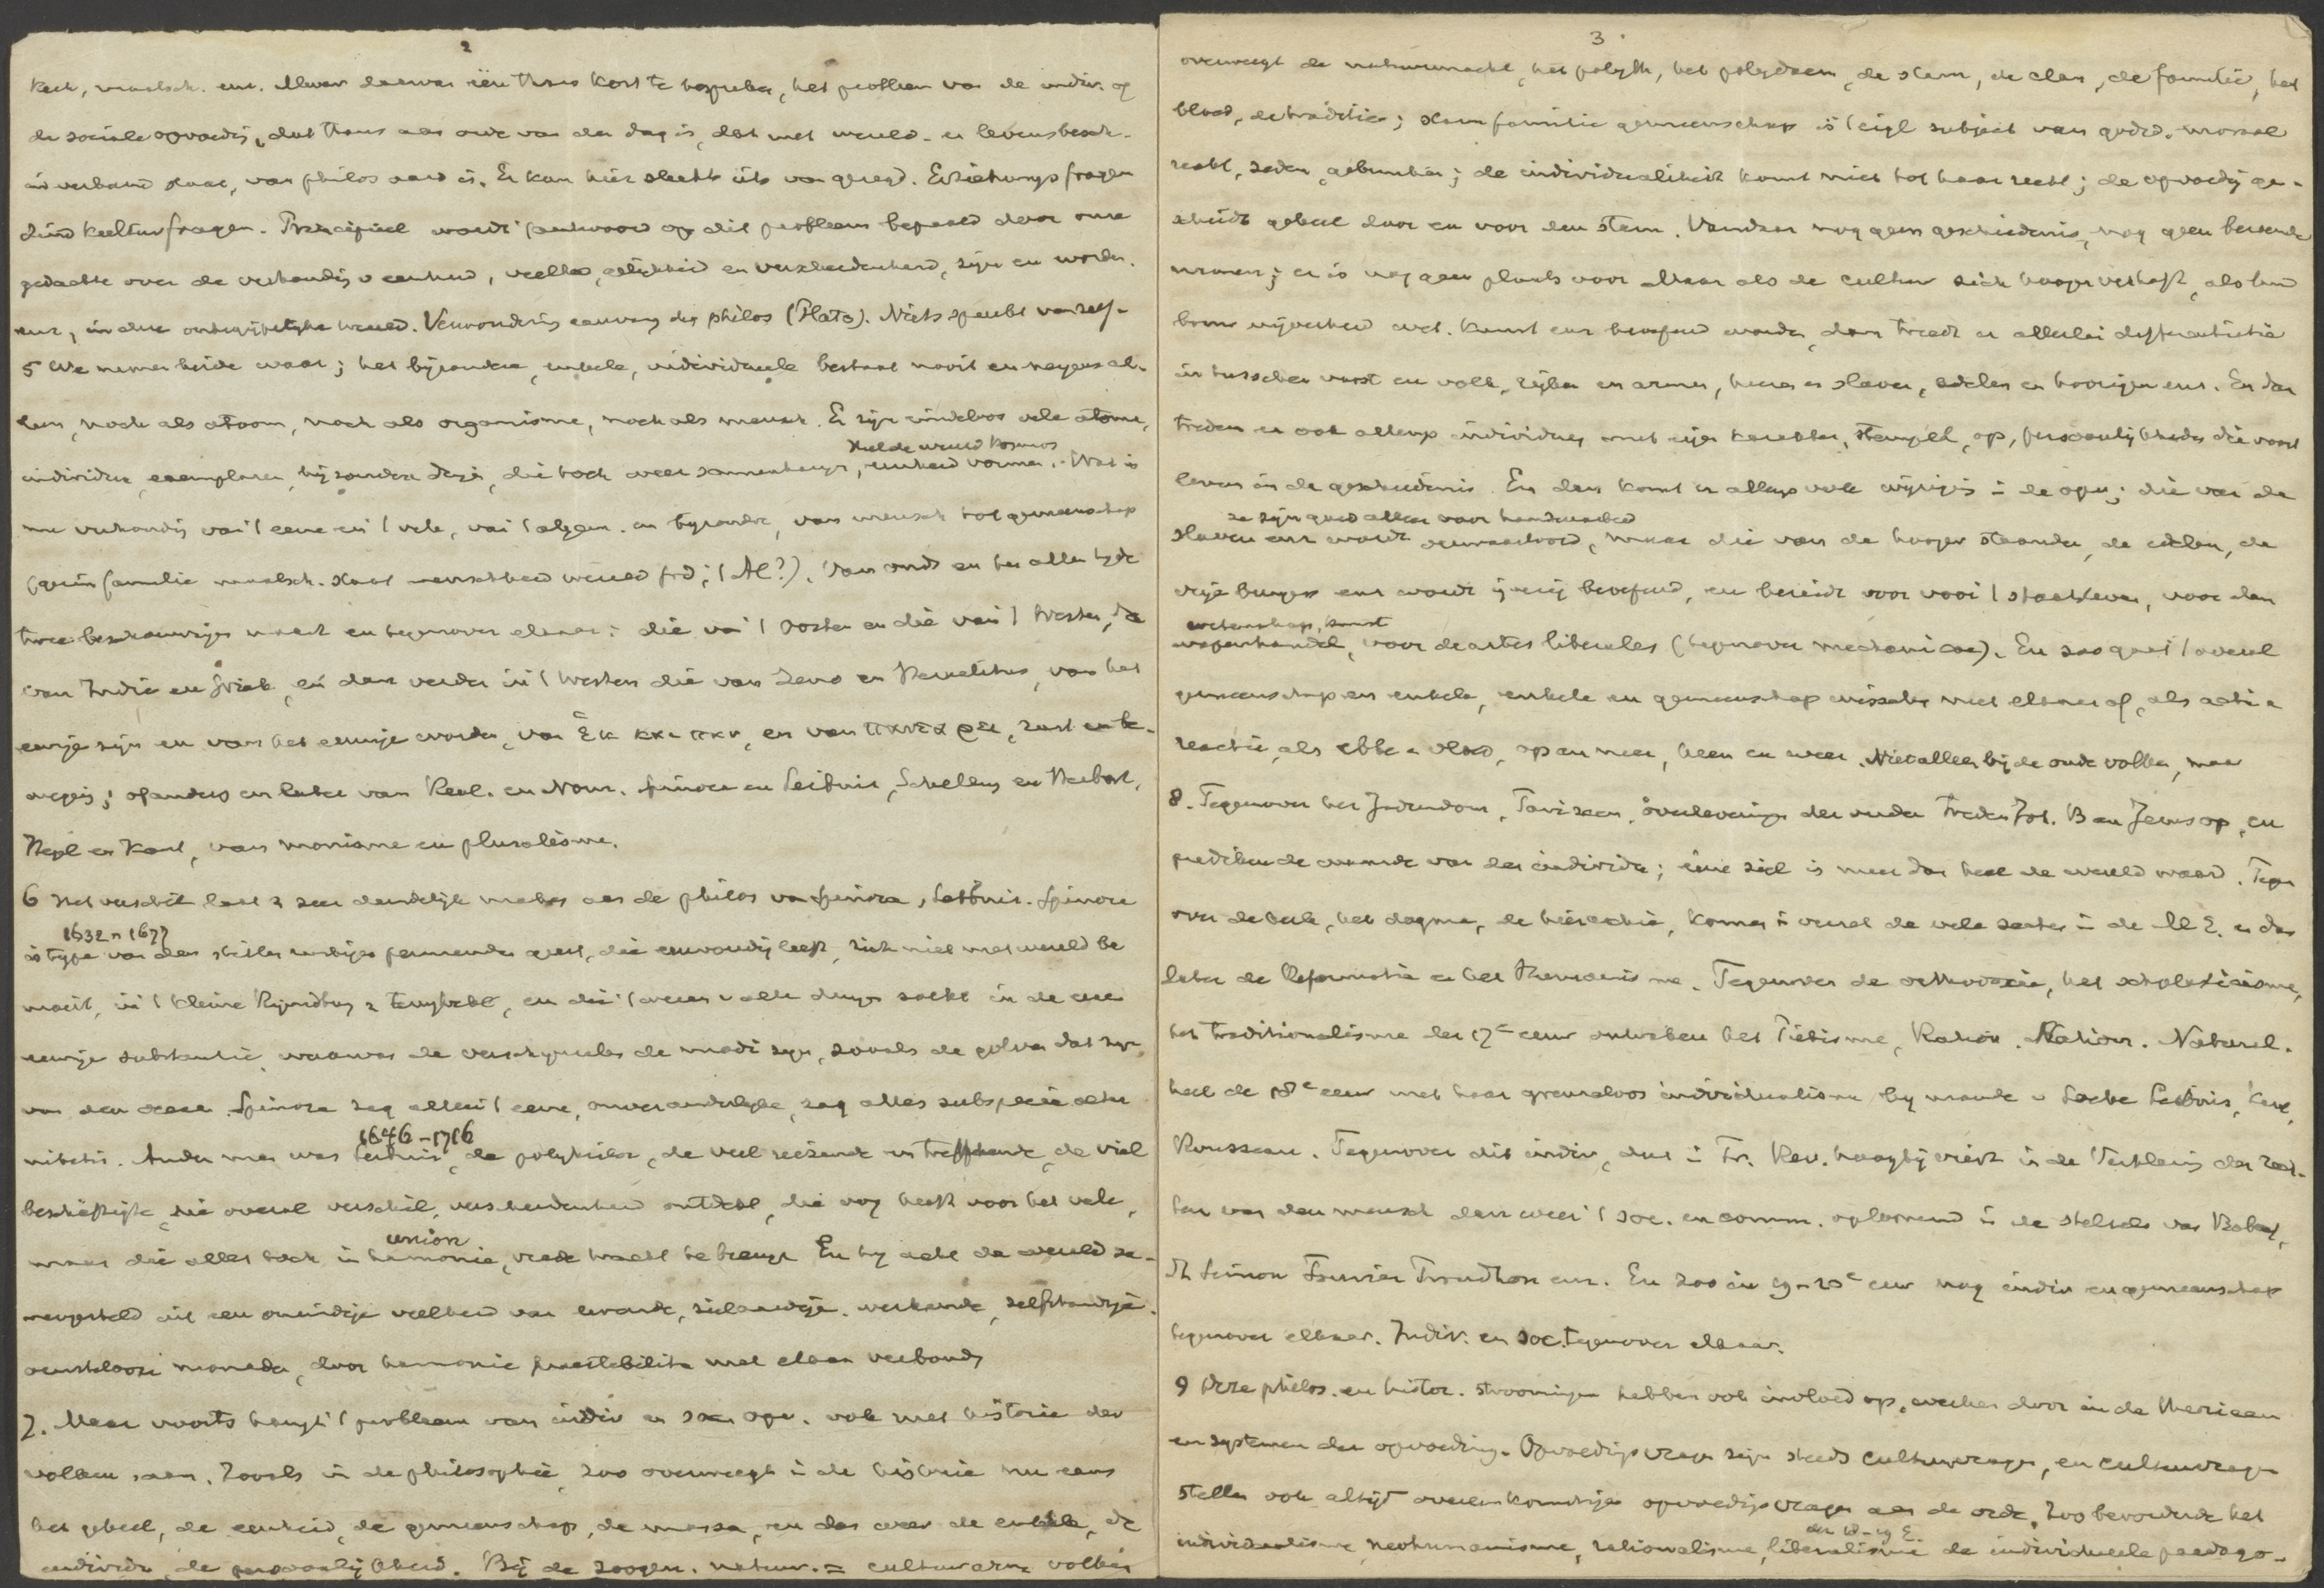 2
kerk, maatsch. enz. Alleen daarvan één thans kort te bespreken, het probleem van de indiv. of
de sociale opvoedig, dat thans aan orde van den dag is, dat met wereld- en levensbesch.
in verband staat, van philos aard is. Er kan hier slechts iets van gezegd. Erziehungsfragen
sind Kulturfragen. Principieel wordt 't antwoord op dit probleem bepaald door onze
gedachte over de verhoudig v eenheid, veelh, gelijkheid en verscheidenheid, zijn en worden.
enz, in deze onbegrijpelijke wereld. Verwondering aanvang der philos (Plato). Niets spreekt vanzelf.
5 We nemen beide waar; het bijzondere, enkele, individueele bestaat nooit en nergens al-
leen, noch als atoom, noch als organisme, noch als mensch. Er zijn eindeloos vele atomen,
individuen, exemplaren, bijzondere dingen, die toch weer samenhangen, eenheid vormen. Wat is
heele wereld kosmos
nu verhoudig van 't eene en 't vele, van 't algem. en bijzondre, van mensch tot gemeenschap
(gezin familie maatsch. staat menschheid wereld God; 't Al?). Van ouds en ten allen tijde
twee beschouwingen naast en tegenover elkaar: die van 't Oosten en die van 't Westen, de
van Indië en Griek, en dan verder in 't Westen die van Zeno en Heraclitus, van het
eenige zijn en van het eeuwige worden, van ἓν και παν, en van παντα ρει, rust en be-
weging; opnieuw en later van Real. en Nom. Spinoza en Leibniz, Schelling en Herbart,
Hegel en Kant, van monisme en pluralisme.
6 Het verschil laat z zeer duidelijk maken aan de philos van Spinoza, Leibniz. Spinoza
1632-1677
is type van den stillen rustigen peinzenden geest, die eenvoudig leeft, zich niet met wereld be
moeit, in 't kleine Rijnsburg z terugtrekt, en die 't wezen v alle dingen zoekt in de eene
eeuwige substantie, waarvan de verschijnselen de modi zijn, zooals de golven dat zijn,
van den oceaan. Spinoza zag alleen 't eene, onveranderlijke, zag alles sub specie aeter
nitatis. Ander man was Leibniz, de polyhistor, de veel reizende en treffende, de viel
1646-1716
beschäftigte, die overal verschil, verscheidenheid ontdekt, die oog heeft voor het vele,
maar die alles toch in harmonie, vrede tracht te brengen. En hij acht de wereld sa-
union
mengesteld uit een oneindige veelheid van levende, zielaardige, werkende, zelfstandige.
vensterlooze monaden, door harmonie praestabilita met elkaar verbonden
7. Maar voorts hangt 't probleem van indiv en soc. opv. ook met historie der
volken saam. Zooals in de philosophie, zoo overweegt in de historie nu eens
het geheel, de eenheid, de gemeenschap, de massa, en dan weer de enkele, de
individu, de persoonlijkheid. Bij de zoogen. natuur- = cultuurarme volken
3
overweegt de natuurmacht, het polyth, het polydaem, de stam, de clan, de familie, het
bloed, de traditie; stam familie gemeenschap is 't eigl subject van godsd. moraal
recht, zeden, gebruiken; de individualiteit komt niet tot haar recht; de opvoedig ge-
schiedt geheel door en voor den stam. Vandaar nog geen geschiedenis, nog geen beroemde
mannen; er is nog geen plaats voor. Maar als de cultuur zich hooger verheft, als land
bouw nijverheid wet. kunst enz beoefend worden, dan treedt er allerlei differentiatie
in tusschen vorst en volk, rijken en armen, heeren en slaven, edelen en hoorigen enz. En dan
treden er ook allengs individuen met eigen karakter, stempel, op, persoonlijkheden die voort
leven in de geschiedenis. En dan komt er allengs ook wijziging in de opv; die van de
ze zijn goed alleen voor handenarbeid
slaven enz wordt verwaarloosd, maar die van de hooger staanden, de edelen, de
vrije burgers enz wordt ijverig beoefend, en bereidt voor voor 't staatsleven, voor den
wetenschap, kunst
wapenhandel, voor de artes liberales (tegenover mechanicae). En zoo gaat 't overal
gemeenschap en enkele, enkele en gemeenschap wisselen met elkaar af, als actie en
reactie, als ebbe en vloed, op en neer, heen en weer. Niet alleen bij de oude volken, maar
8. Tegenover het Jodendom, Farizeen, overleveringen der ouden treden Joh. B en Jezus op, en
prediken de waarde van den individu; éene ziel is meer dan heel de wereld waard. Tegen
over de kerk, het dogma, de hierarchie, komen in verzet de vele secten in de M E. en dan
later de Reformatie en het Humanisme. Tegenover de orthodoxie, het scholasticisme,
het traditionalisme der 17e eeuw ontwaken het Piëtisme, Ration. Naturel.
heel de 18e eeuw met haar grenzeloos individualisme bij monde v Locke Leibniz, Kant,
Rousseau. Tegenover dit indiv, dat in Fr. Rev. hoogtij viert in de Verklaring der rech-
ten van den mensch dan weer 't soc. en comm. opkomend in de stelsels van Babeuf,
St Simon Fourier Proudhon enz. En zoo in 19-20e eeuw nog indiv en gemeenschap
tegenover elkaar. Indiv. en soc. tegenover elkaar.
9 Deze philos. en histor. stroomingen hebben ook invloed op, werken door in de theorieen
en systemen der opvoeding. Opvoedigsvragen zijn steeds cultuurvragen, en cultuurvragen
stellen ook altijd overeenkomstige opvoedigsvragen aan de orde. Zoo bevorderde het
der 18-19 E.
individualisme, neohumanisme, rationalisme, liberalisme de individueele paedago-